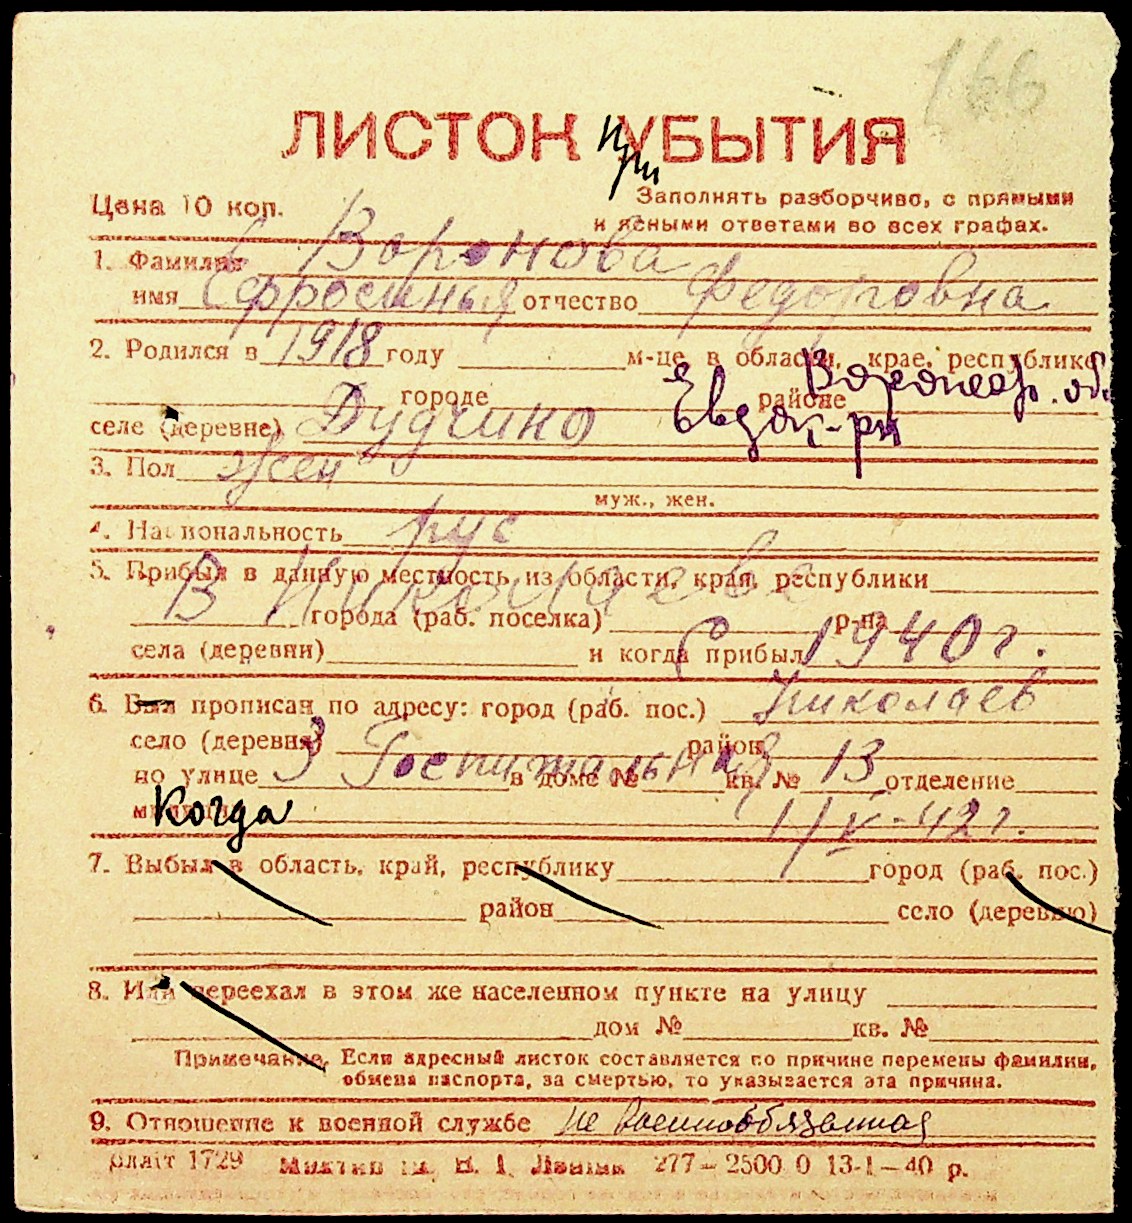 166
ЛИСТОК УБЫТИЯ
при
Цена 10 коп.
Заполнять разборчиво, с прямыми
и ясными ответами во всех графах.
1. Фамилия Воронова
имя Ефросинья отчество Федоровна
2. Родился в 1918 году м-це в области, крае, республике
Воронеж. об.
городе районе
Евдок. р-н
селе (деревне) Дудчино
3. Пол Жен
муж., жен.
4. Национальность рус
5. Прибыл в данную местность из области, края, республики
В Николаеве
города (раб. поселка) р-на
села (деревни) и когда прибыл С 1940 г.
6. Был прописан по адресу: город (раб. пос.) Николаев
село (деревня) район
по улице 3 Госпитальная в доме № кв. № 13 отделение
милиции Когда 1/V-42 г.
7. Выбыл в область, край, республику город (раб. пос.)
район село (деревню)
8. Или переехал в этом же населенном пункте на улицу
дом № кв. №
Примечание. Если адресный листок составляется по причине перемены фамилии,
обмена паспорта, за смертью, то указывается эта причина.
9. Отношение к военной службе не военнообязанная
1729 277–2500 0 13-1–40 р.